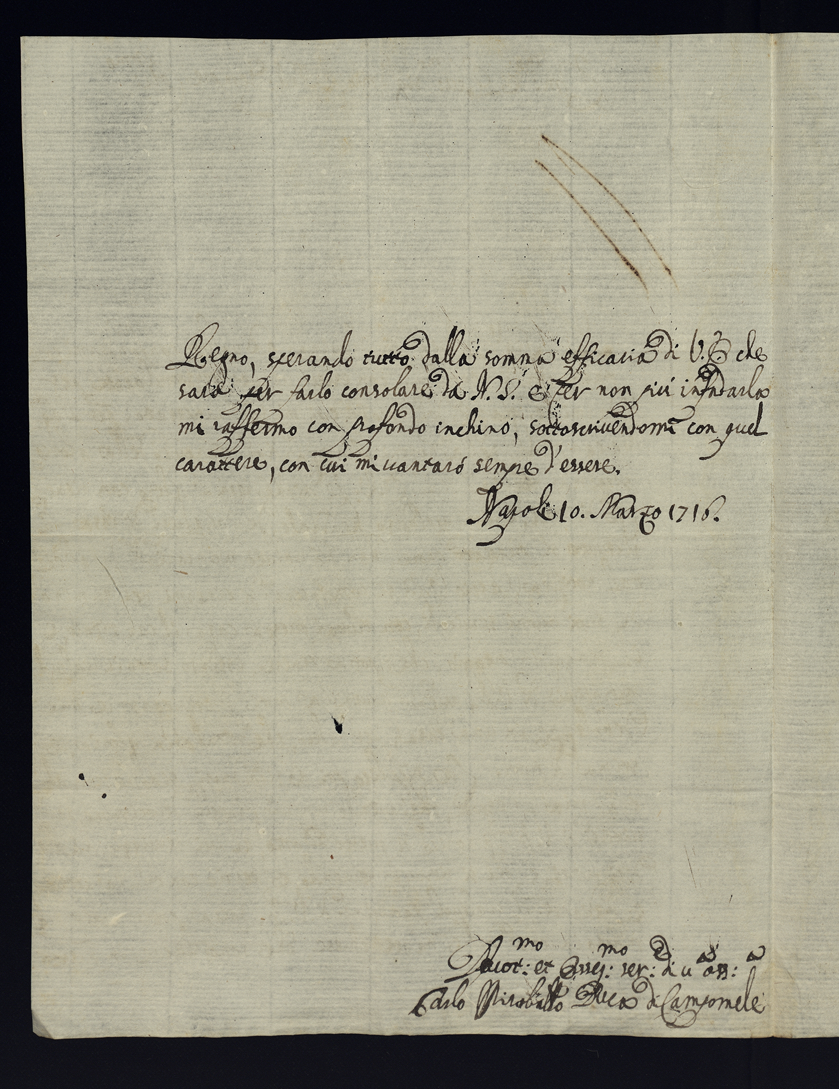 Regno, sperando tutto dalla somma efficacia di V. E. che
sarà per farlo consolare da N. S. e per non più infadarla
mi raffermo con profondo inchino, sottoscrivendomi con quel
carattere, con cui mi vantarò sempre d'essere.
Napoli 10. Marzo 1716.
Devot:mo et osseq:mo ser:e di V.
Carlo Duca di Campomele